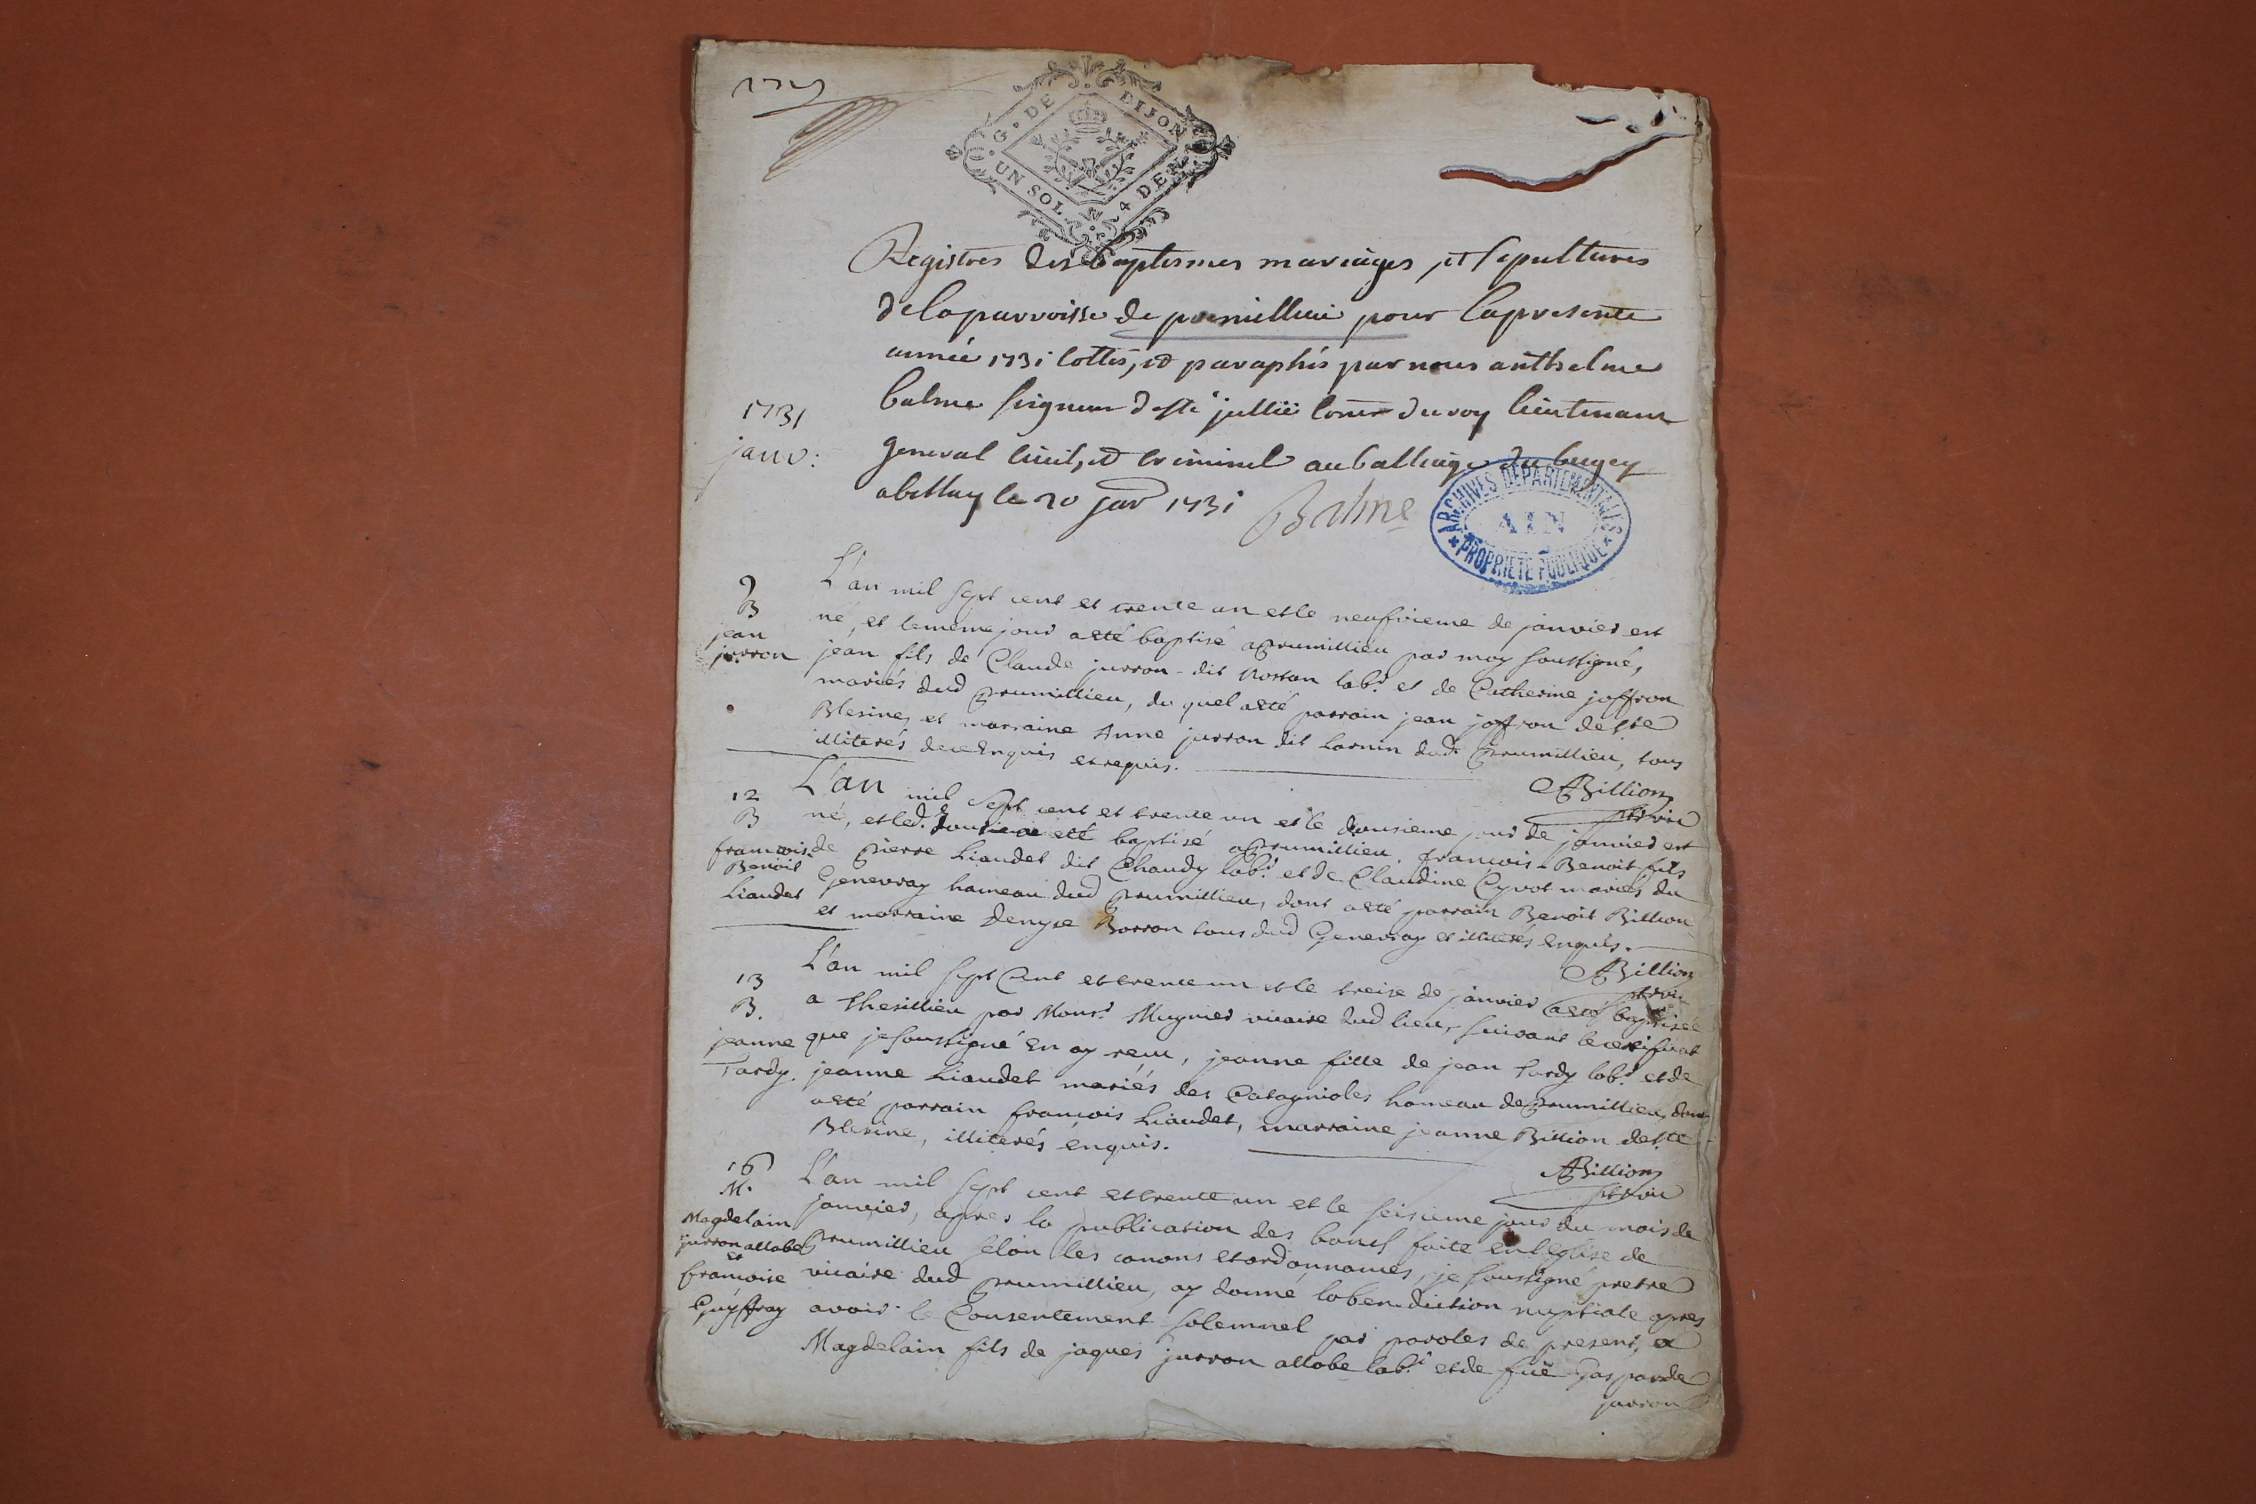 G. DE DIJON
UN SOL 4 DEN
Registres des baptesmes mariages, et sepultures
de la parroisse de premillieu pour la presente
année 1731 cottés, et paraphés par nous anthelme
balme seigneur de ste jullie conser du roy lieutenant
general civil, et criminel au balliage du bugey
a bellay le 20 janv 1731 Balme
1731
janv:
ARCHIVES DEPARTEMENTALES
AIN
PROPRIETE PUBLIQUE
9
B
jean
jurron
L'an mil sept cent et trente un et le neufvieme de janvier est
né, et le meme jour a eté baptisé a prumillieu par moy soussigné,
jean fils de Claude jurron dit Rostan labr. et de Catherine joffron
mariés dud prumillieu, du quel a eté parrain jean joffron de ste
Blesine, et marraine Anne jurron dit Larnin dud. prumillieu, tous
illiterés de ce enquis et requis.
Billion
ptre vic
12
B
francois
Benoit
Liaudet
L'an mil sept cent et trente un et le dousieme jour de janvier est
né, et led. dousieme eté baptisé a prumillieu, francois-Benoit fils
de pierre Liaudet dit Chaudy labr. et de Claudine Cyvot mariés du
Genevray hameau dud prumillieu, dont a eté parrain Benoit Billion
et marraine Denyse Borron tous dud Genevray et illiterés enquis.
Billion
ptre vic
13
B.
jeanne
Tardy.
L'an mil sept Cent et trente un et le treise de janvier a eté baptisée
a Thesillieu par Monsr. Mugnier vicaire dud lieu, suivant le certificat
que je soussigné en ay reçu, jeanne fille de jean tardy labr. et de
jeanne Liaudet mariés des Catagnioles hameau de prumillieu, dont
a eté parrain francois Liaudet, marraine jeanne Billion de ste
Blesine, illiterés enquis.
Billion
ptre vic
16
M.
Magdelain
jurron allobe
et
francoise
Guyffray
L'an mil sept cent et trente un et le seisieme jour du mois de
janvier, apres la publication des bancs faite en l'eglise de
prumillieu selon les canons et ordonnances, je soussigné pretre
vicaire dud prumillieu, ay donné la benediction nuptiale apres
avoir le Consentement solemnel par paroles de present, a
Magdelain fils de jaques jurron allobe labr. et de fuë Gasparde
jurron